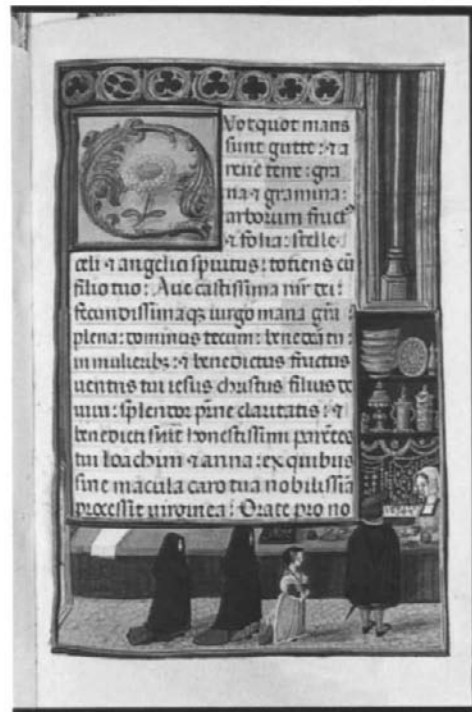 Quot quot maris
sunt gutte : et a
rene terre : gra
na et gramina :
arborum fruct⁹
et folia : stelle
celi et angelici spiritus : totiens cū
filio tuo : Aue castissima mr̄ dei :
fecundissimaq; uirgo maria grā
plena : dominus tecum : benedcā tu :
in mulieribz : et benedictus fructus
uentris tui iesus christus filius de
uiui : splendor pr̄ne claritatis : et
benedicti sint honestissimi parētes
tui Ioachim et anna : ex quibus
sine macula caro tua nobilissīa
processit uirginea : Orate pro no